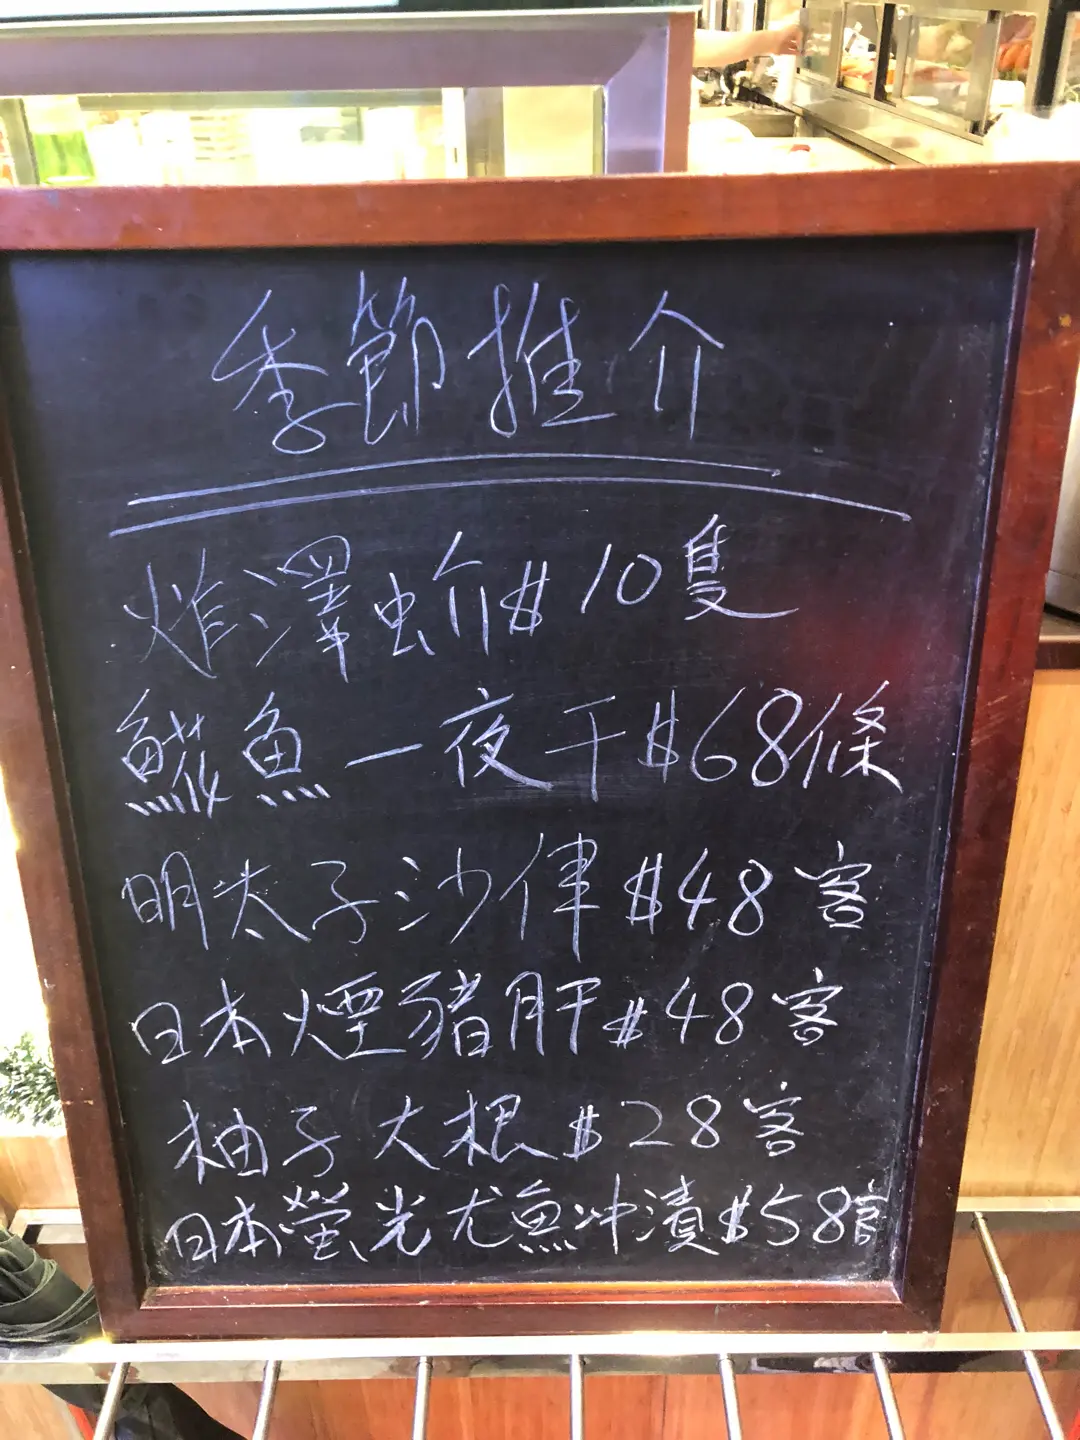 季節推介
炸澤虫介$10隻
鯎魚一夜干$68/條
明太子沙律$48客
日本煙豬肝$48客
柚子大根$28客
日本螢光尤魚沖漬$58客